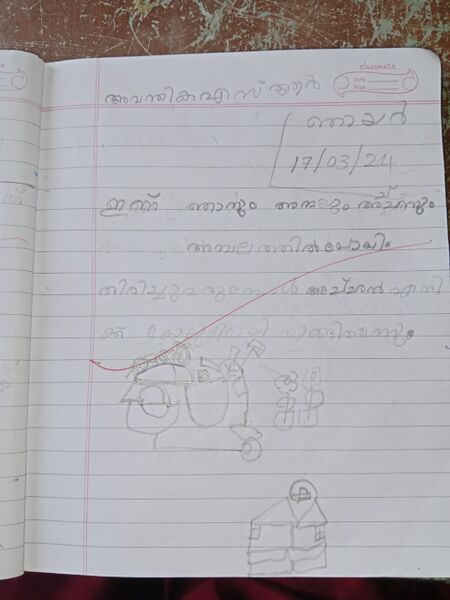 classmate
Date
Page
അവന്തിക എസ് ആർ
ഞായർ
17/03/24
ഇന്ന് ഞാനും അമ്മയും അച്ഛനും
അമ്പലത്തിൽ പോയി.
തിരിച്ചുവരുമ്പോൾ അച്ഛൻ എനി
ക്ക്